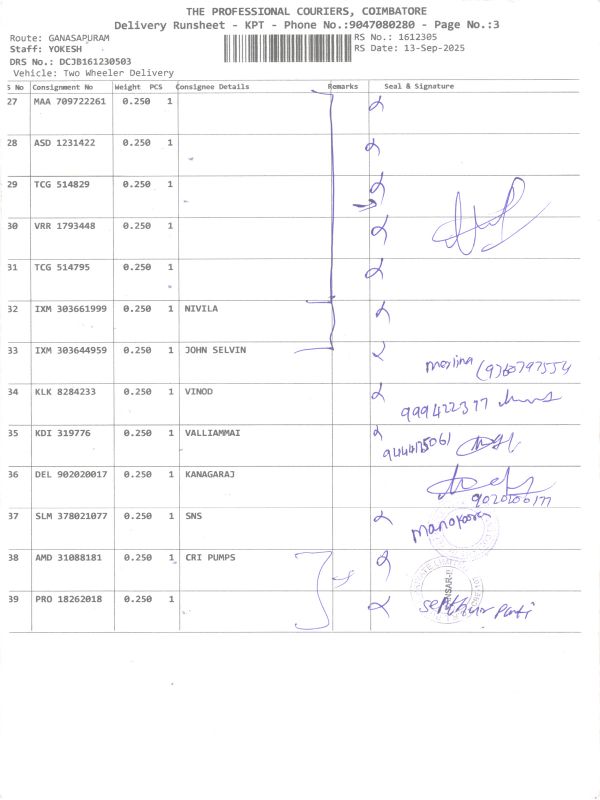 THE PROFESSIONAL COURIERS, COIMBATORE
Delivery Runsheet - KPT - Phone No.:9047080280 - Page No.:3
Route: GANASAPURAM RS No.: 1612305
Staff: YOKESH RS Date: 13-Sep-2025
DRS No.: DCJB161230503
Vehicle: Two Wheeler Delivery
S No Consignment No Weight PCS Consignee Details Remarks Seal & Signature
27 MAA 709722261 0.250 1
28 ASD 1231422 0.250 1
29 TCG 514829 0.250 1
30 VRR 1793448 0.250 1
31 TCG 514795 0.250 1
32 IXM 303661999 0.250 1 NIVILA
33 IXM 303644959 0.250 1 JOHN SELVIN
Merlina (9360797554
34 KLK 8284233 0.250 1 VINOD
999422377
35 KDI 319776 0.250 1 VALLIAMMAI
36 DEL 902020017 0.250 1 KANAGARAJ
37 SLM 378021077 0.250 1 SNS
38 AMD 31088181 0.250 1 CRI PUMPS
39 PRO 18262018 0.250 1